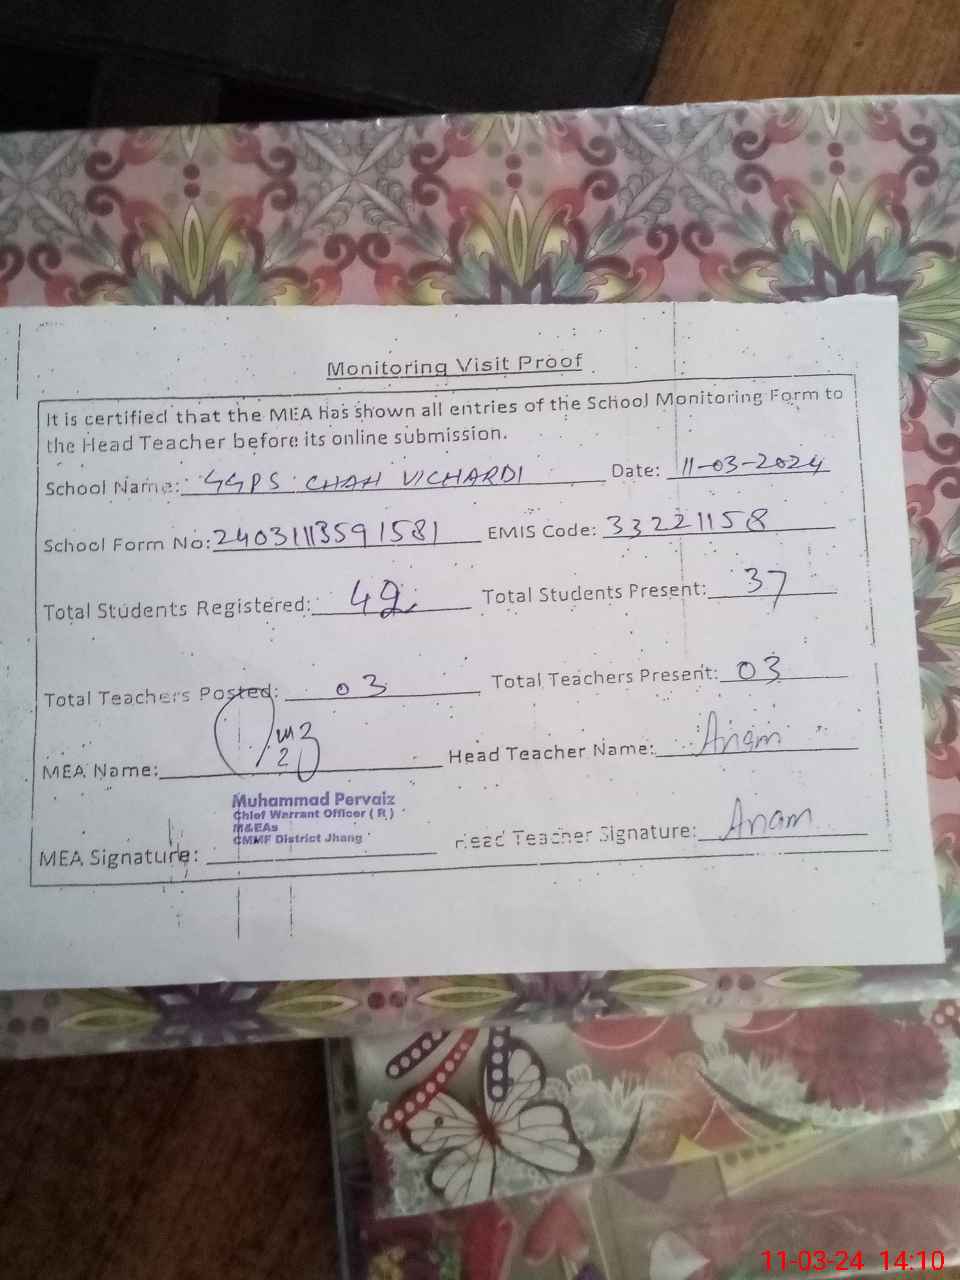 Monitoring Visit Proof
It is certified that the MEA has shown all entries of the School Monitoring Form to
the Head Teacher before its online submission.
School Name: GGPS CHAH VICHARDI Date: 11-03-2024
School Form No: 24031113591581 EMIS Code: 33221158
Total Students Registered: 42 Total Students Present: 37
Total Teachers Posted: 03 Total Teachers Present: 03
MEA Name: Head Teacher Name: Anam
Muhammad Pervaiz
Chief Warrant Officer ( R )
M&EAs
CMMF District Jhang
MEA Signature: Head Teacher Signature: Anam
11-03-24 14:10